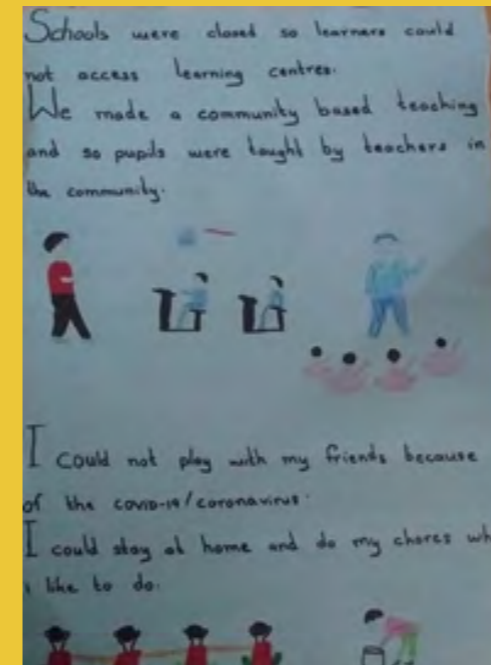 Schools were closed so learners could
not access learning centres.
We made a community based teaching
and so pupils were taught by teachers in
the community.
I could not play with my friends because
of the covid-19/coronavirus.
I could stay at home and do my chores wh
i like to do.